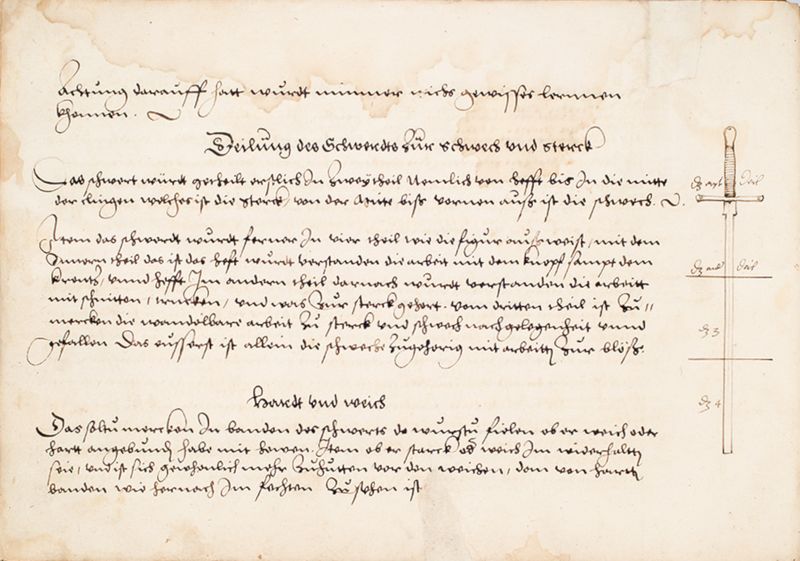 Achtung darauff hatt wurdt nimmer nichs gewisses lernnen
khonnen.
Teilung des Schwerdts Zur schwech vnd sterck
Das schwert würdt getheilt erstlich In Zwey theil Nemlich von hefft bis In die mitte
der clingen welches ist die sterck von der Mitte biss vornen auss ist die schwech.
Item das schwerdt wurdt ferner In vier theil wie die figur aussweist, mit dem
Innern theil das ist das heft wurdt verstanden die arbeit mit dem knopf sampt dem
kreutz, vnnd hefft Im andern theil darnach wurdt verstanden die arbeitt
mit schnitten, trucken, vnd was Zur sterck gehort. vom dritten theil ist Zu=
mercken die wandelbare arbeit Zu sterck vnd schwech nach gelegenheit vnnd
gefallen Das eusserst ist allein die schweche Zugehorig mit arbeitten Zur blöss.
Hardt vnd weich
Das soltu mercken In banden des schwerts do wurstu fielen ob er weich oder
hartt angebunden habe mit howen. Item ob er starck oder weich Im widerhaltten
seie, vnd ist sich gewohnlich mehr Zuhutten vor den weichen, dem von hartten
banden wie hernach Im fechten Zu sehen ist
dz erst deil
dz and deil
dz 3
dz 4